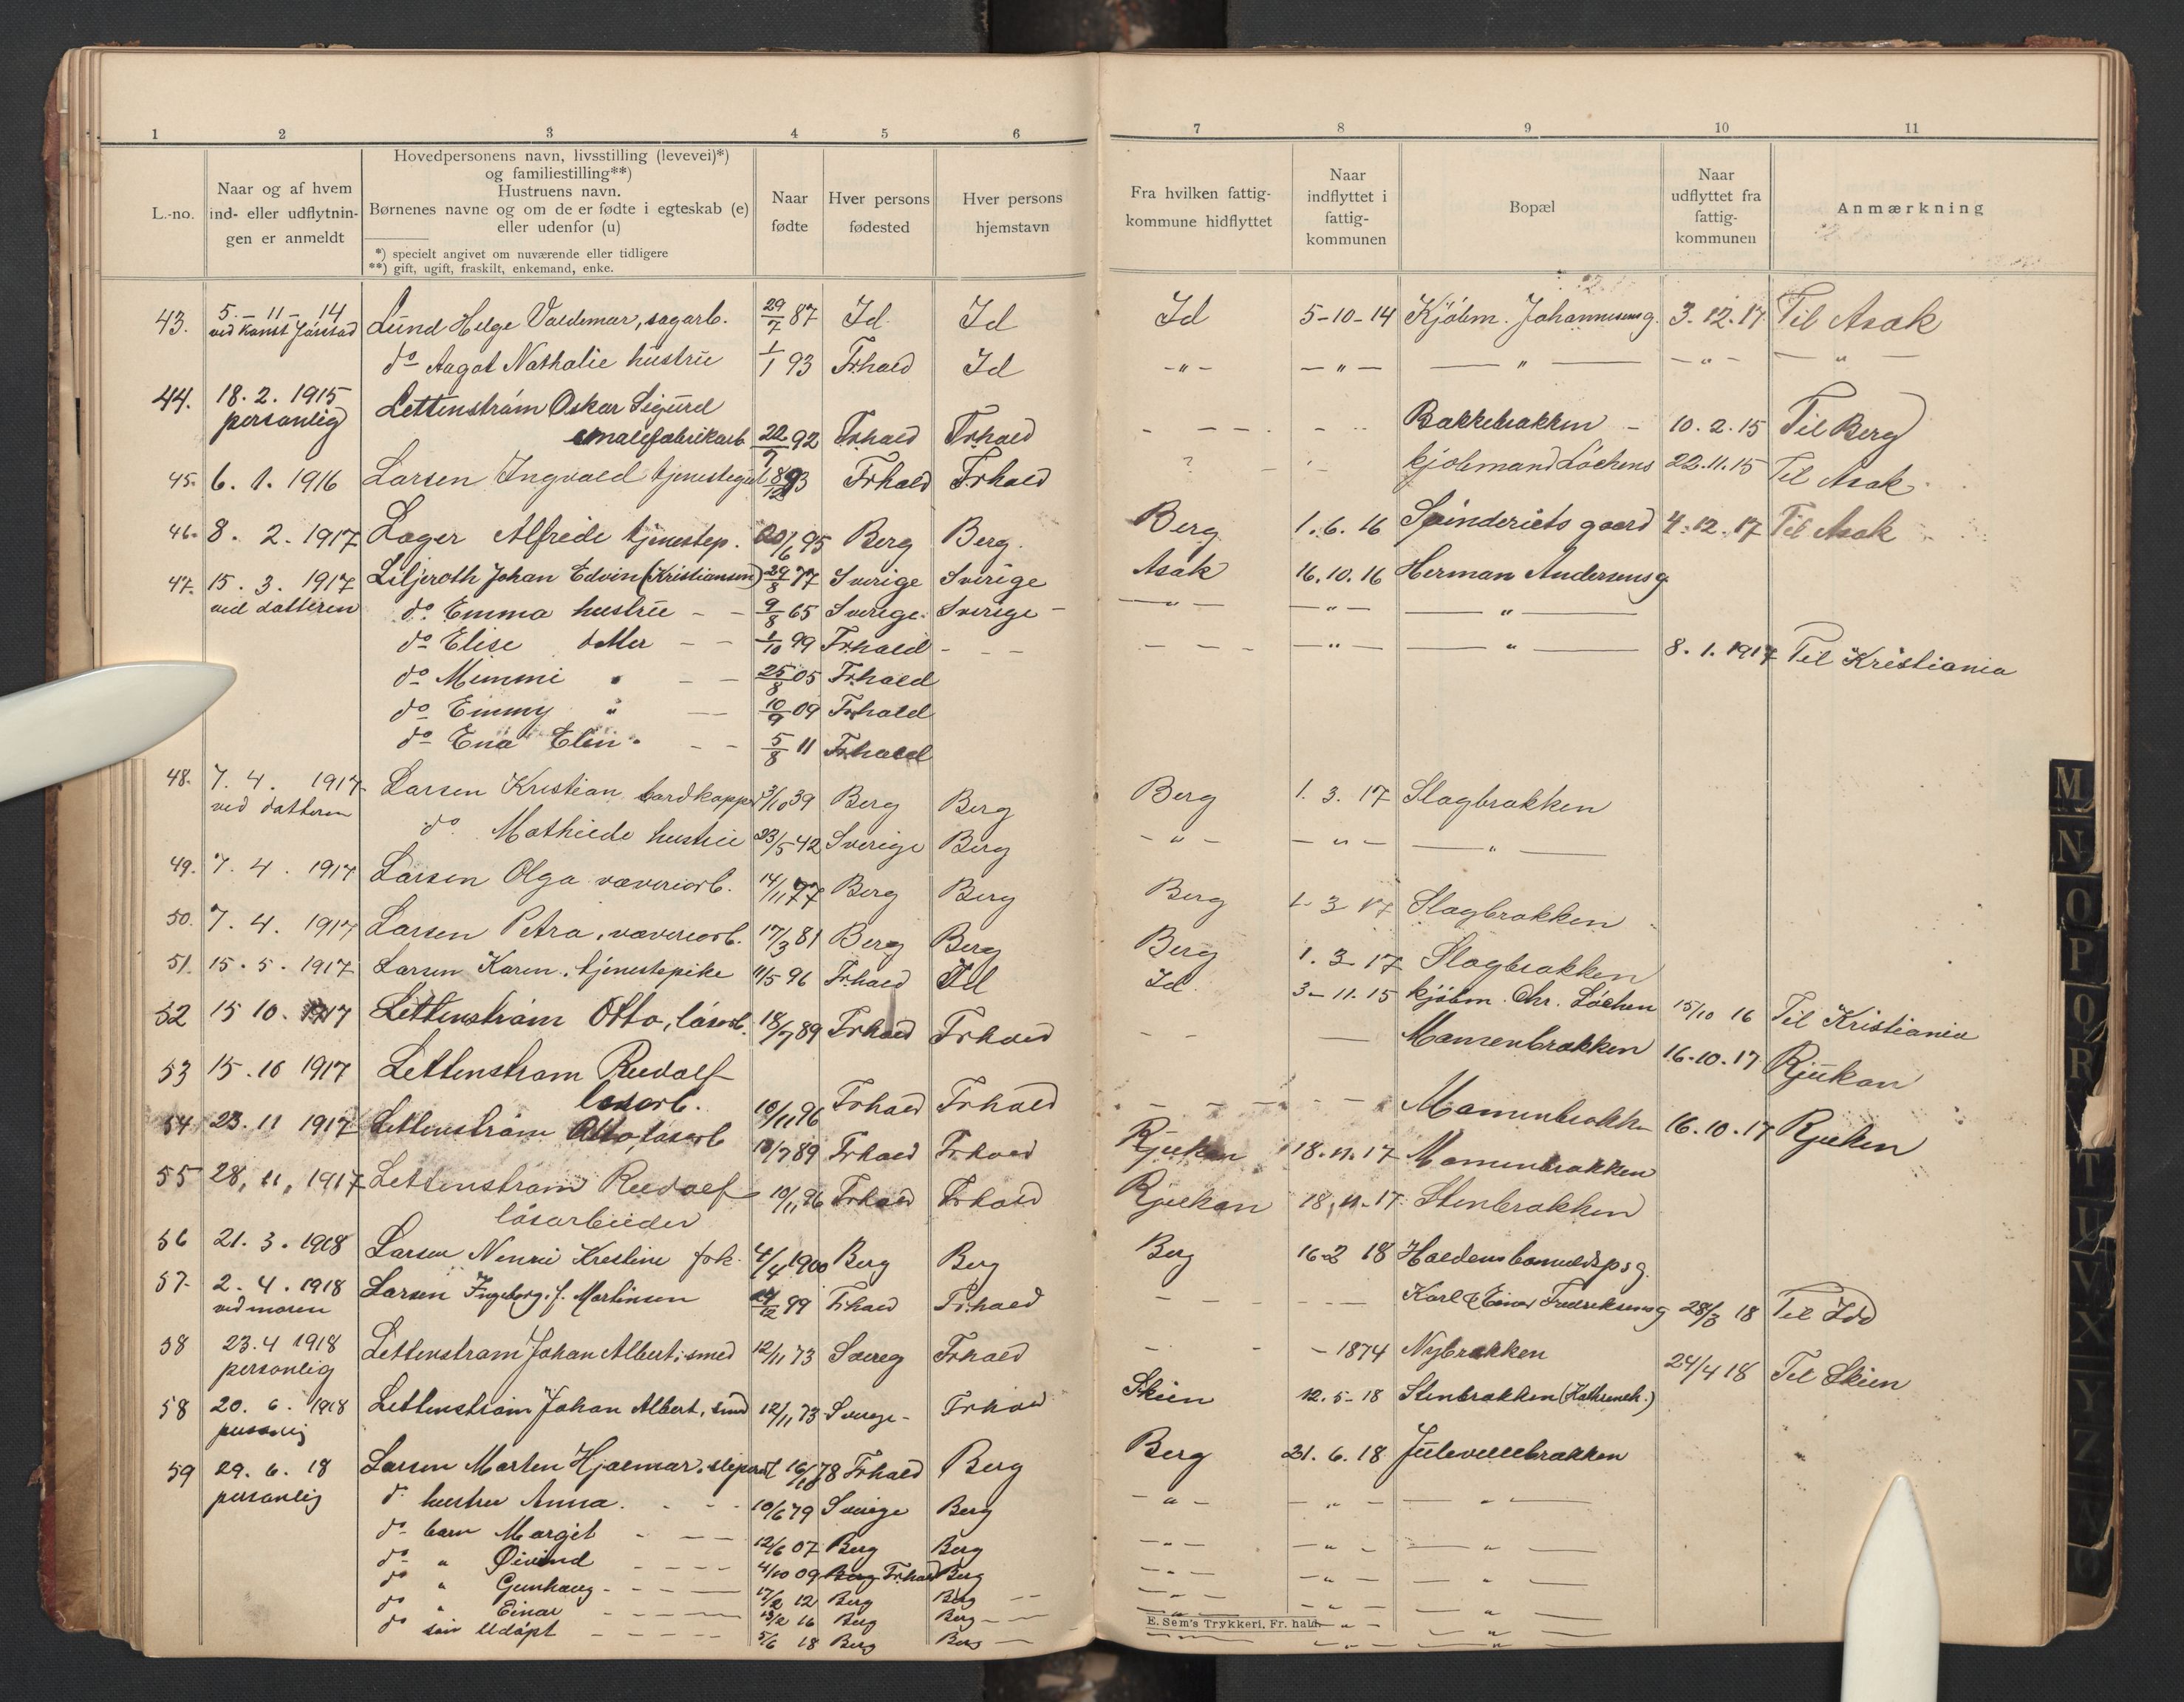 1 2 3 4 5 6 7 8 9 10 11
L.-no.
Naar og af hvem
ind- eller udflytnin-
gen er anmeldt
Hovedpersonens navn, livsstilling (levevei)*)
og familiestilling**)
Hustruens navn.
Børnenes navne og om de er fødte i egteskab (e)
eller udenfor (u)
*) specielt angivet om nuværende eller tidligere
**) gift, ugift, fraskilt, enkemand, enke.
Naar
fødte
Hver persons
fødested
Hver persons
hjemstavn
Fra hvilken fattig-
kommune hidflyttet
Naar
indflyttet i
fattig-
kommunen
Bopæl
Naar
udflyttet fra
fattig-
kommunen
Anmærkning
43. 5. - 11 - 14 Lund Helge Valdemar, sagarb. 29/7 87 Id Id Id 5-10-14 Kjöbm. Johannesens g. 3.12.17 Til Asak
ved Konst. Jörstad
do Aagot Nathalie hustru 1/1 93 Frhald Id - " - - " - - " - - " - - " -
44. 18. 2. 1915 Lettenström Oskar Sigurd
personlig emalefabrikarb. 22/7 92 Frhald Frhald Bakkebrakken - 10.2.15 Til Berg
45. 6. 1. 1916 Larsen Ingvald tjenestegut 93 Frhald Frhald ? kjöbmand Löchens 22.11.15 Til Asak
46. 8. 2. 1917 Lager Alfrede tjenestep. 20/6 95 Berg Berg. Berg 1.6.16 Spinderiets gaard 4.12.17 Til Asak
47. 15. 3. 1917 Liljeroth Johan Edvin (Kristiansen) 29/8 77 Sverige Sverige Asak 16.10.16 Herman Andersens g.
ved datteren do Emma hustru - - 9/8 65 Sverige Sverige - - " - - " - - " -
do Elise datter - - 1/10 99 Frhald - - - - - - - " - - " - 8.1.1917 Til Kristiania
do Mimmi " - - 25/8 05 Frhald
do Emmy " - 10/9 09 Frhald
do Ena Elin " - - 5/8 11 Frhald
48. 7. 4. 1917 Larsen Kristian 3/10 39 Berg Berg Berg 1. 3. 17 Slagbrakken
ved datteren
do Mathilde hustru 23/5 42 Sverige Berg - " - - " - - " -
49. 7. 4. 1917 Larsen Olga væveriarb. 14/11 77 Berg Berg Berg 1. 3 17 Slagbrakken
50. 7. 4. 1917 Larsen Petra, væveriarb. 17/3 81 Berg Berg Berg 1. 3. 17 Slagbrakken
51. 15. 5. 1917 Larsen Karen, tjenestepike 11/5 96 Frhald Id Id 3-11.15 kjöbm. Chr. Löchen 15/10 16 Til Kristiania
52 15 10. 1917 Lettenström Otto, låsarb. 18/7 89 Frhald Frhald - - - Mansenbrakken 16.10.17 Rjukan
53 15. 10 1917 Lettenstrøm Rudolf
låsarb. 10/11 96 Frhald Frhald - - - - - Mansenbrakken 16.10.17 Rjukan
54 23. 11 1917 Lettenström Otto, låsarb 18/7 89 Frhald Frhald Rjukan 18.11.17 Mansenbrakken
55 28, 11, 1917 Lettenström Rudolf 10/11 96 Frhald Frhald Rjukan 18,11.17 Stenbrakken
låsarbeider
56 21. 3. 1918 Larsen Nenni Kristine fbk. 4/4 1900 Berg Berg Berg 16-2 18 Haldens bomuldsp g.
57. 2. 4. 1918 Larsen Ingeborg, f. Martinsen 99 Frhald Frhald - - - - Karl Einar Fredriksens g 28/3 18 Til Idd
ved moren
58 23. 4 1918 Lettenström Johan Albert, smed 12/11 73 Sverig Frhald - - - 1874 Nybrakken 24/4 18 Til Skien
personlig
58 20. 6. 1918 Lettenström Johan Albert, smed 12/11 73 Sverige - Frhald Skien 12.5-18 Stenbrakken
personlig
59 29. 6. 18 Larsen Marten Hjalmar, sliperarb 78 Frhald Berg Berg 21. 6. 18 Julevillebrakken
personlig do hustru Anna. - - - 10/6 79 Sverige Berg - " - - " - - " -
do barn Margit - - - 12/6 07 Berg Berg - " - - " - - " -
do " Øivind - - - - 4/10 09 Berg Frhald Berg - " - - " - - " -
do " Gunhaug - - - - 17/2 12 Berg Berg - - - " - - " -
do " Einar - - - - 13/2 16 Berg Berg - - - " - - " - - " -
do søn Udöpt - - - - 5/6 18 Berg Berg - - " - - " -
E. Sem's Trykkeri, Fr. hald
M
N
O
P
Q
R
T
U
V
X
Y
Z
Ø